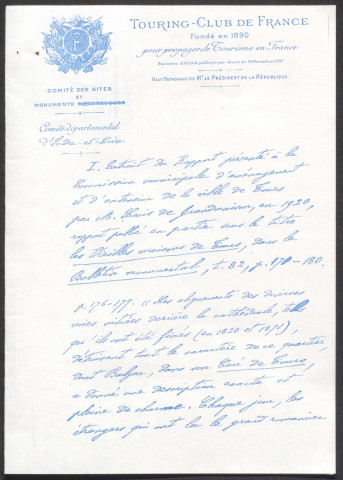 TOURING-CLUB DE FRANCE
Fondé en 1890
pour propager le Tourisme en France
Reconnu d'utilité publique par décret du 30 Novembre 1907
HAUT PATRONAGE DE Mr LE PRÉSIDENT DE LA RÉPUBLIQUE
COMITÉ DES SITES
ET
MONUMENTS
Comité départemental
d'Indre-et-Loire
I. Extrait du Rapport présenté à la
Commission municipale d'aménagement
et d'extension de la ville de Tours
par M. Louis de Grandmaison, en 1920,
rapport publié en partie sous le titre
les Vieilles maisons de Tours, dans le
Bulletin monumental, t. 82, p. 170-180.
p. 176-177. "Les alignements des diverses
voies situées derrière la cathédrale, tels
qu'ils ont été fixés (en 1820 et 1871),
détruisent tout le caractère de ce quartier
dont Balzac, dans son Curé de Tours,
a donné une description exacte et
pleine de charme. Chaque jour, les
étrangers qui ont lu le grand romancier